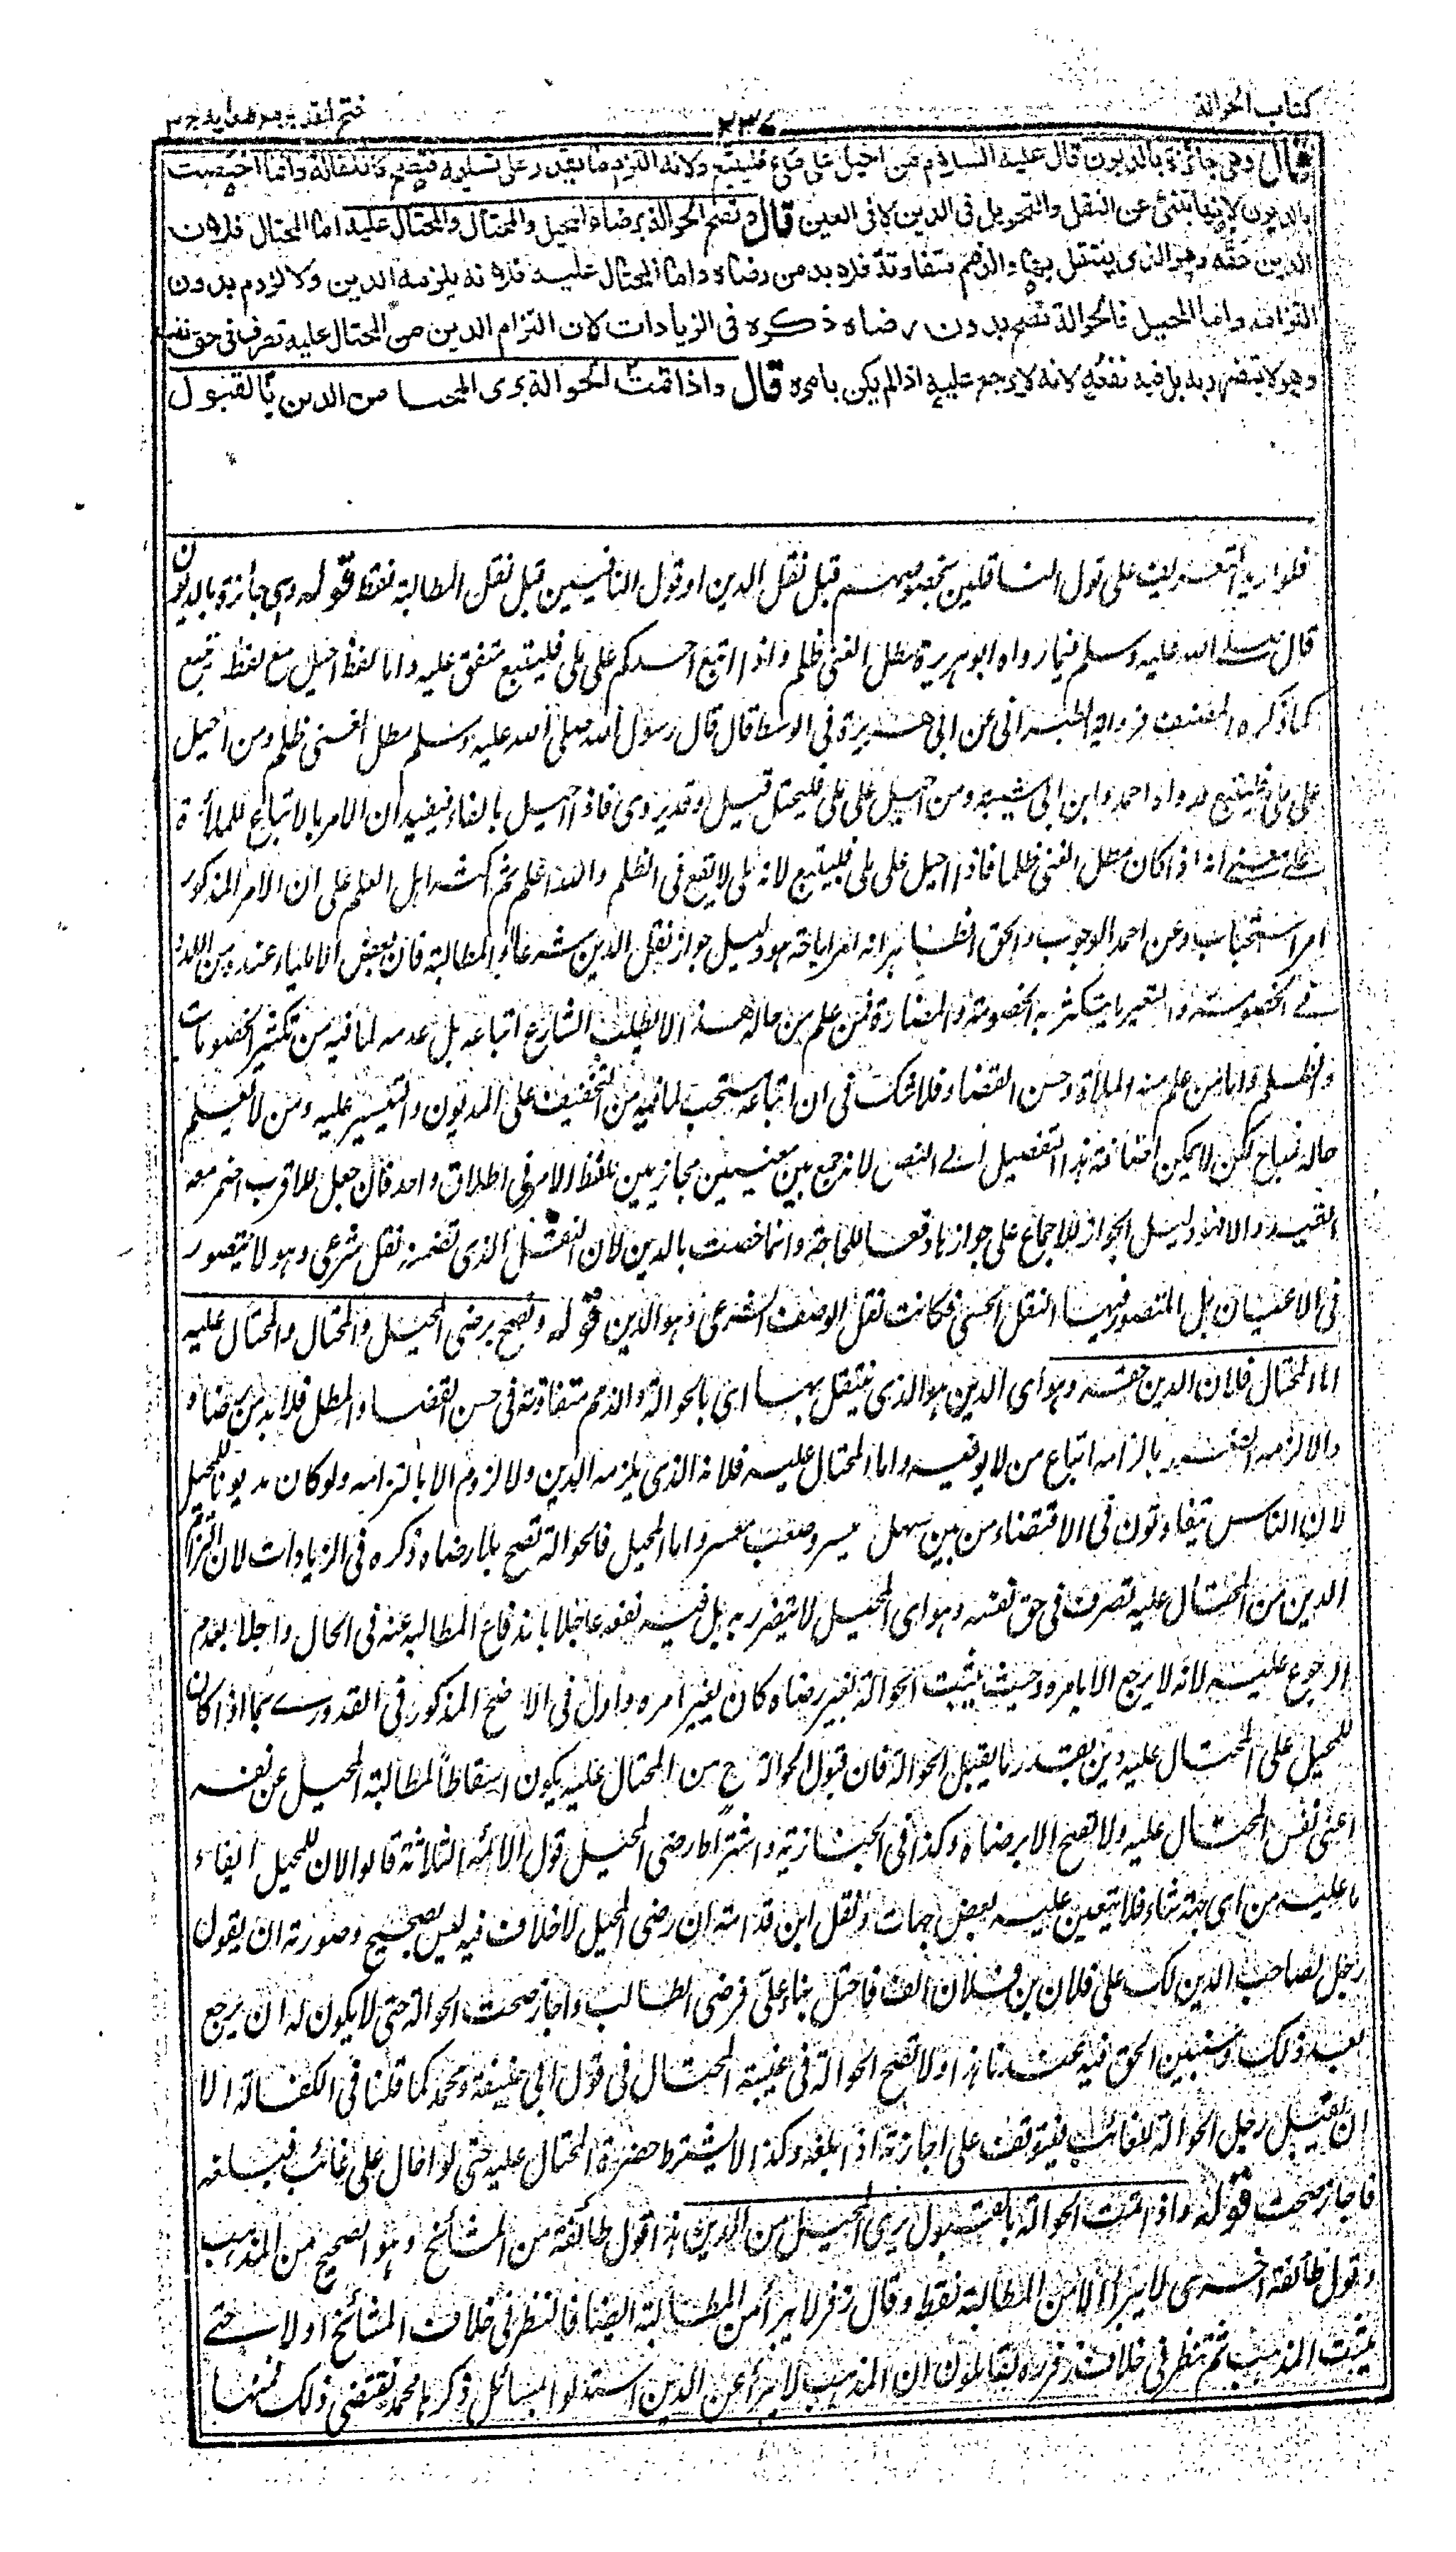 كتاب الحوالة
٢٣٧
فتح القدير مع هدايه ج ٣
قال وهي جائزة بالديون قال عليه السلام من احيل على ملئ فليتبع ولانه التزم ما يقدر على تسليمه فتصح كالكفالة وانما اختصت
بالديون لانها تنبئ عن النقل والتحويل في الدين لا في العين قال وتصح الحوالة برضاء المحيل والمحتال والمحتال عليه اما المحتال فلان
الدين حقه وهو الذي ينتقل بها والذمم متفاوتة فلا بد من رضاه واما المحتال عليه فلانه يلزمه الدين ولا لزوم بدون
التزامه واما المحيل فالحوالة تصح بدون رضاه ذكره في الزيادات لان التزام الدين من المحتال عليه تصرف في حق نفسه
وهو لا يتضرر به بل فيه نفعه لانه لا يرجع عليه اذا لم يكن بامره قال واذا تمت الحوالة برئ المحيل من الدين بالقبول
فلو اريد التعريف على قول الناقلين بخصوصهم قيل نقل الدين او قول النافيين قيل نقل المطالبة فقط قوله وهي جائزة بالديون
قال صلى الله عليه وسلم فيما رواه ابو هريرة مطل الغني ظلم واذا اتبع احدكم على ملي فليتبع متفق عليه واما لفظ احيل مع لفظ يتبع
كما ذكره المصنف فرواية الطبراني عن ابي هريرة في الاوسط قال قال رسول الله صلى الله عليه وسلم مطل الغني ظلم ومن احيل
على ملي فليتبع ورواه احمد وابن ابي شيبة ومن احيل على ملي فليحتل قيل وقد يروى فاذا احيل بالفاء فيفيد ان الامر بالاتباع للملاءة
على معنى انه اذا كان مطل الغني ظلما فاذا احيل على ملي فليتبع لانه ملي لا يقع في الظلم والله اعلم ثم اكثر اهل العلم على ان الامر المذكور
امر استحباب وعن احمد الوجوب والحق الظاهر انه امر اباحة هو دليل جواز نقل الدين شرعا او المطالبة فان بعض الاملياء عنده من اللدد
في الخصومة والتعسير ما يتكثر به الخصومة والمضارة فمن علم من حاله هذا لا يطلب الشارع اتباعه بل عدمه لما فيه من تكثير الخصومات
والظلم واما من علم منه الملاءة وحسن القضاء فلا شك في ان اتباعه مستحب لما فيه من التخفيف على المديون والتيسير عليه ومن لا يعلم
حاله فمباح لكن لا يمكن اضافة هذا التفصيل الى النص لانه جمع بين معنيين مجازيين للفظ الامر في اطلاق واحد فان جعل للاقرب اضمر معه
القيد والا فهو دليل الجواز للاجماع على جوازها دفعا للحاجة وانما خصت بالدين لان النقل الذي تضمنه نقل شرعي وهو لا يتصور
في الاعيان بل المتصور فيها النقل الحسي فكانت نقل الوصف الشرعي وهو الدين قوله وتصح برضى المحيل والمحتال والمحتال عليه
اما المحتال فلان الدين حقه وهو اى الدين هو الذي ينتقل بها اى بالحوالة والذمم متفاوتة في حسن القضاء والمطل فلا بد من رضاه
والا لزمه الضرر بالزامه اتباع من لا يوفيه واما المحتال عليه فلانه الذي يلزمه الدين ولا لزوم الا بالتزامه ولو كان مديونا للمحيل
لان الناس يتفاوتون في الاقتضاء من بين سهل ميسر وصعب معسر واما المحيل فالحوالة تصح بلا رضاه ذكره في الزيادات لان التزام
الدين من المحتال عليه تصرف في حق نفسه وهو اى المحيل لا يتضرر به بل فيه نفعه عاجلا باندفاع المطالبة عنه في الحال واجلا بعدم
الرجوع عليه لانه لا يرجع الا بامره وحيث ثبتت الحوالة بغير رضاه كان بغير امره واول في الاوضح المذكور في القدوري بما اذا كان
للمحيل على المحتال عليه دين بقدر ما يقبل الحوالة فان قبول الحوالة ح من المحتال عليه يكون اسقاطا لمطالبة المحيل عن نفسه
اعني نفس المحتال عليه ولا تصح الا برضاه وكذا في الخبازية واشتراط رضى المحيل قول الائمة الثلاثة قالوا لان للمحيل ايفاء
ما عليه من اى جهة شاء فلا يتعين عليه بعض جهات ونقل ابن قدامة ان رضى المحيل لا خلاف فيه ليس بصحيح وصورته ان يقول
رجل لصاحب الدين لك على فلان بن فلان الف فاحتل بها علي فرضي الطالب واجاز صحت الحوالة حتى لا يكون له ان يرجع
بعد ذلك وسنبين الحق فيه عندنا هذا ولا تصح الحوالة في غيبة المحتال في قول ابي حنيفة ومحمد كما قلنا في الكفالة الا
ان يقبل رجل الحوالة للغائب فيتوقف على اجازته اذا بلغه وكذا لا يشترط حضرة المحتال عليه حتى لو احال على غائب فبلغه
فاجاز صحت قوله واذا تمت الحوالة بالقبول برئ المحيل من الدين هذا قول طائفة من المشائخ وهو الصحيح من المذهب
وقول طائفة اخرى لا يبرأ الا من المطالبة فقط وقال زفر لا يبرأ من المطالبة ايضا فالنظر في خلاف المشائخ اولا حتى
يثبت المذهب ثم ننظر في خلاف زفر رح القائلون ان المذهب لا يبرأ عن الدين استدلوا بمسائل ذكرها محمد تقتضي ذلك فمنها